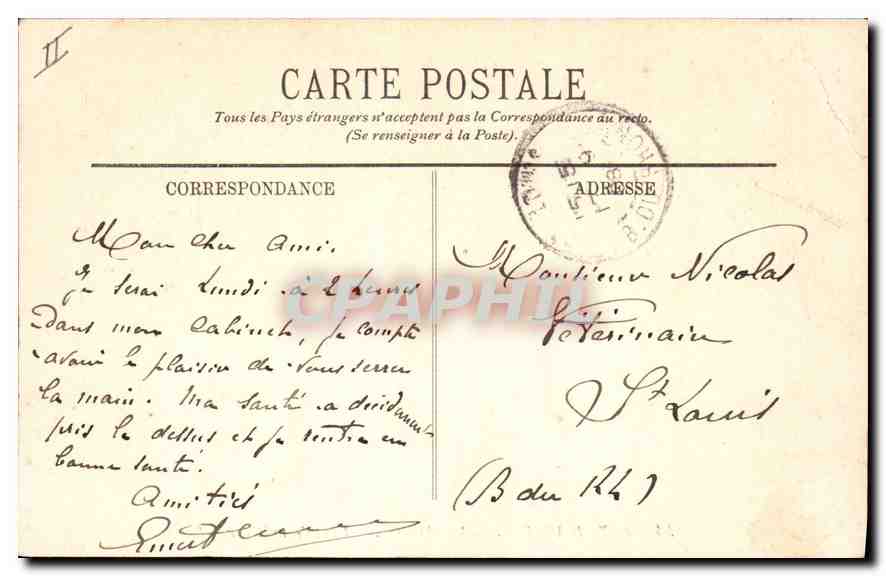 II
CARTE POSTALE
Tous les Pays étrangers n'acceptent pas la Correspondance au recto.
(Se renseigner à la Poste).
CORRESPONDANCE
Mon cher Ami.
Je serai Lundi à 2 heures
dans mon Cabinet, je compte
avoir le plaisir de vous serrer
la main. Ma santé a décidément
pris le dessus et je rentre en
bonne santé.
Amitiés
ADRESSE
Monsieur Nicolas
Vétérinaire
St Louis
(B du Rh)
CPAPHIL